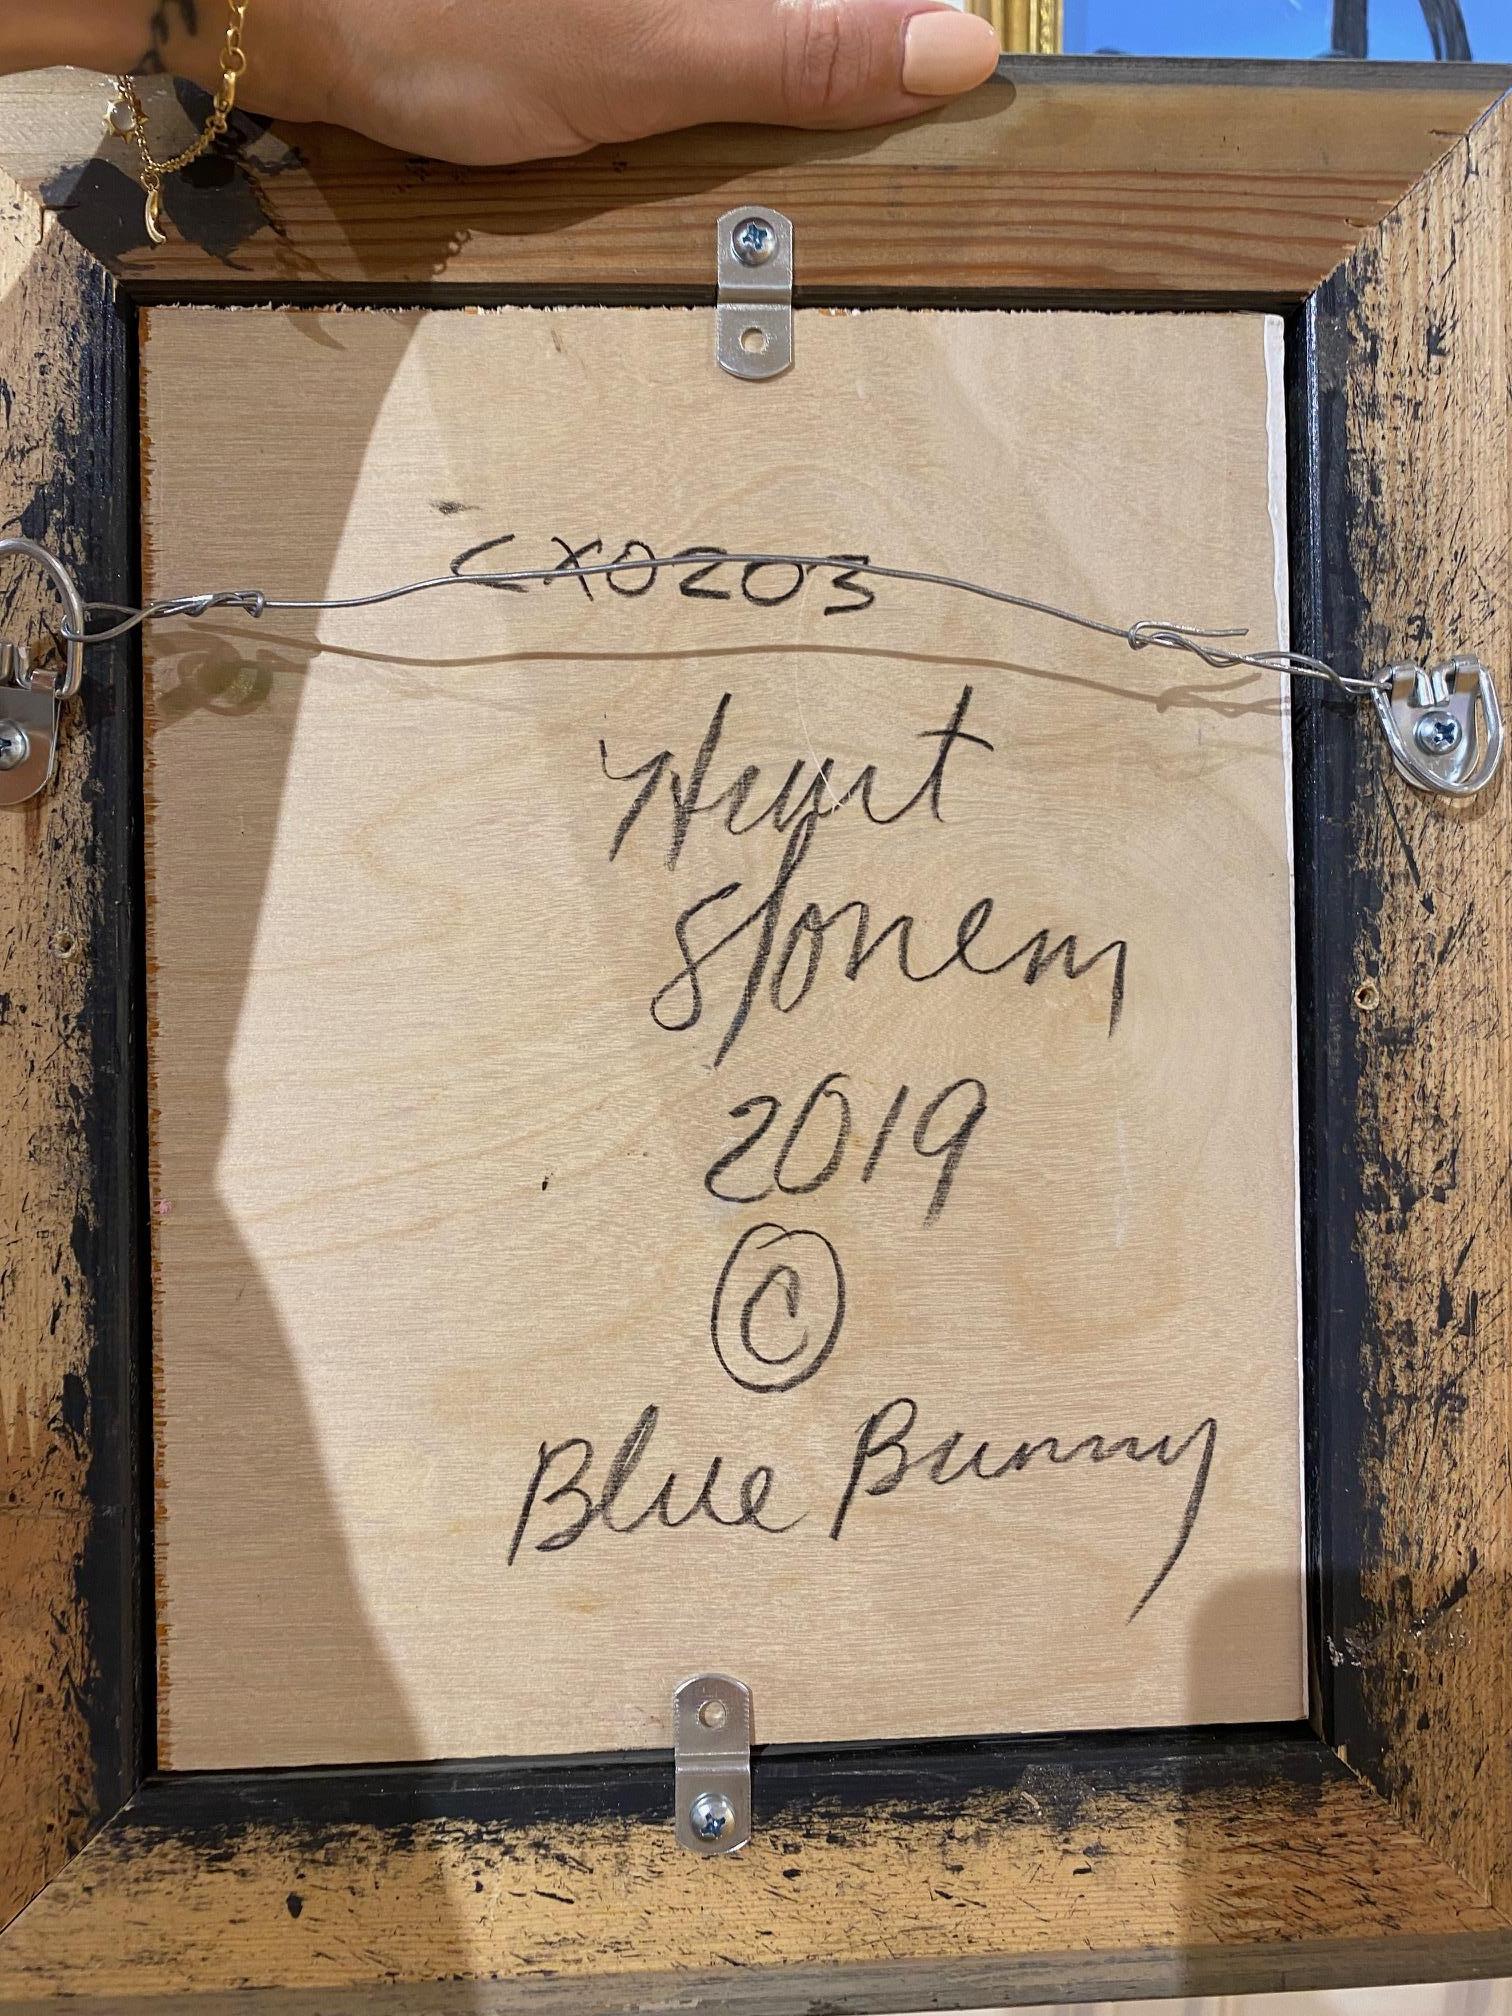 CX0203
Hunt
Slonem
2019
©
Blue Bunny